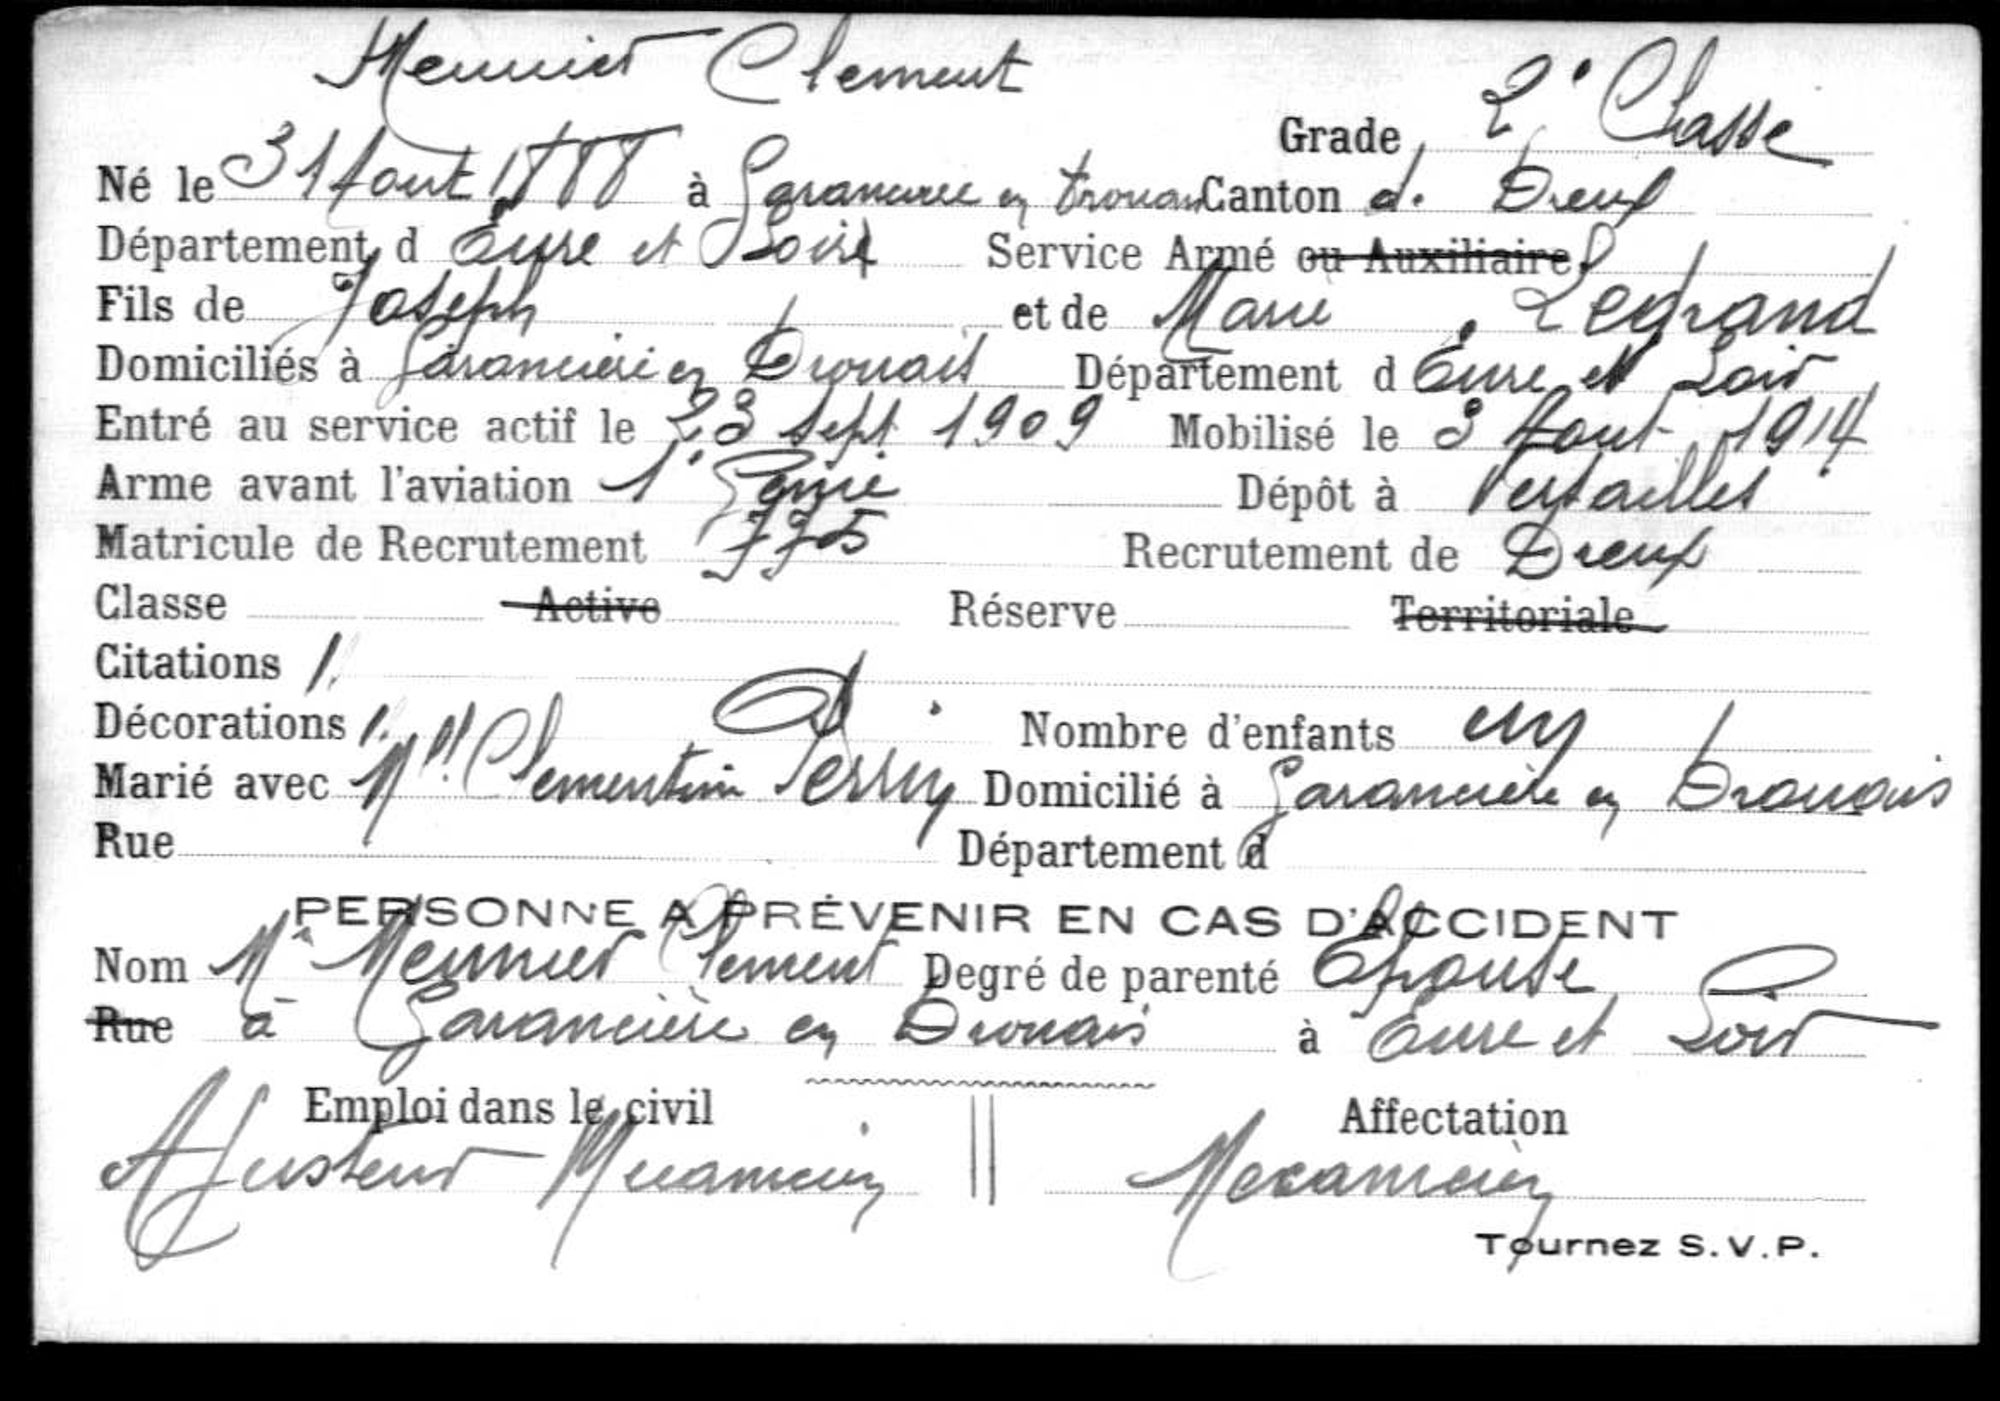 Meunier Clement
Grade 2e Classe
Né le 31 Aout 1888 à Garanciere en Drouais Canton d. Dreux
Département d Eure et Loire Service Armé ou Auxiliaire
Fils de Joseph et de Marie Legrand
Domiciliés à Garanciere en Drouais Département d Eure et Loir
Entré au service actif le 23 Sept 1909 Mobilisé le 3 Aout 1914
Arme avant l'aviation 1er Génie Dépôt à Versailles
Matricule de Recrutement 775 Recrutement de Dreux
Classe Active Réserve Territoriale
Citations /.
Décorations /. Nombre d'enfants un
Marié avec Mlle Clementine Perrin Domicilié à Garancière en Drouais
Rue Département d
PERSONNE A PRÉVENIR EN CAS D'ACCIDENT
Nom Me Meunier Clement Degré de parenté Epouse
Rue à Garancière en Drouais à Eure et Loir
Emploi dans le civil Affectation
Ajusteur Mecanicien Mecanicien
Tournez S.V.P.